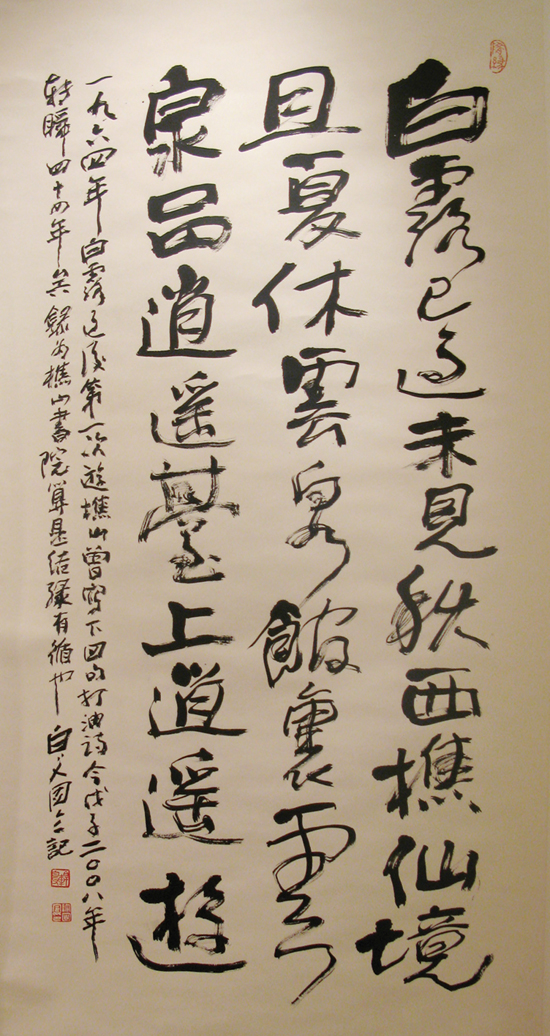 白露已過未見秋西樵仙境
且夏休雲泉館裏雲
泉品逍遥臺上逍遥遊
一九六四年白露過後第一次遊樵山曾寫下四句打油詩今戊子二〇〇八年
轉瞬四十四年矣錄為樵山書院算是結緣有循也 白 記